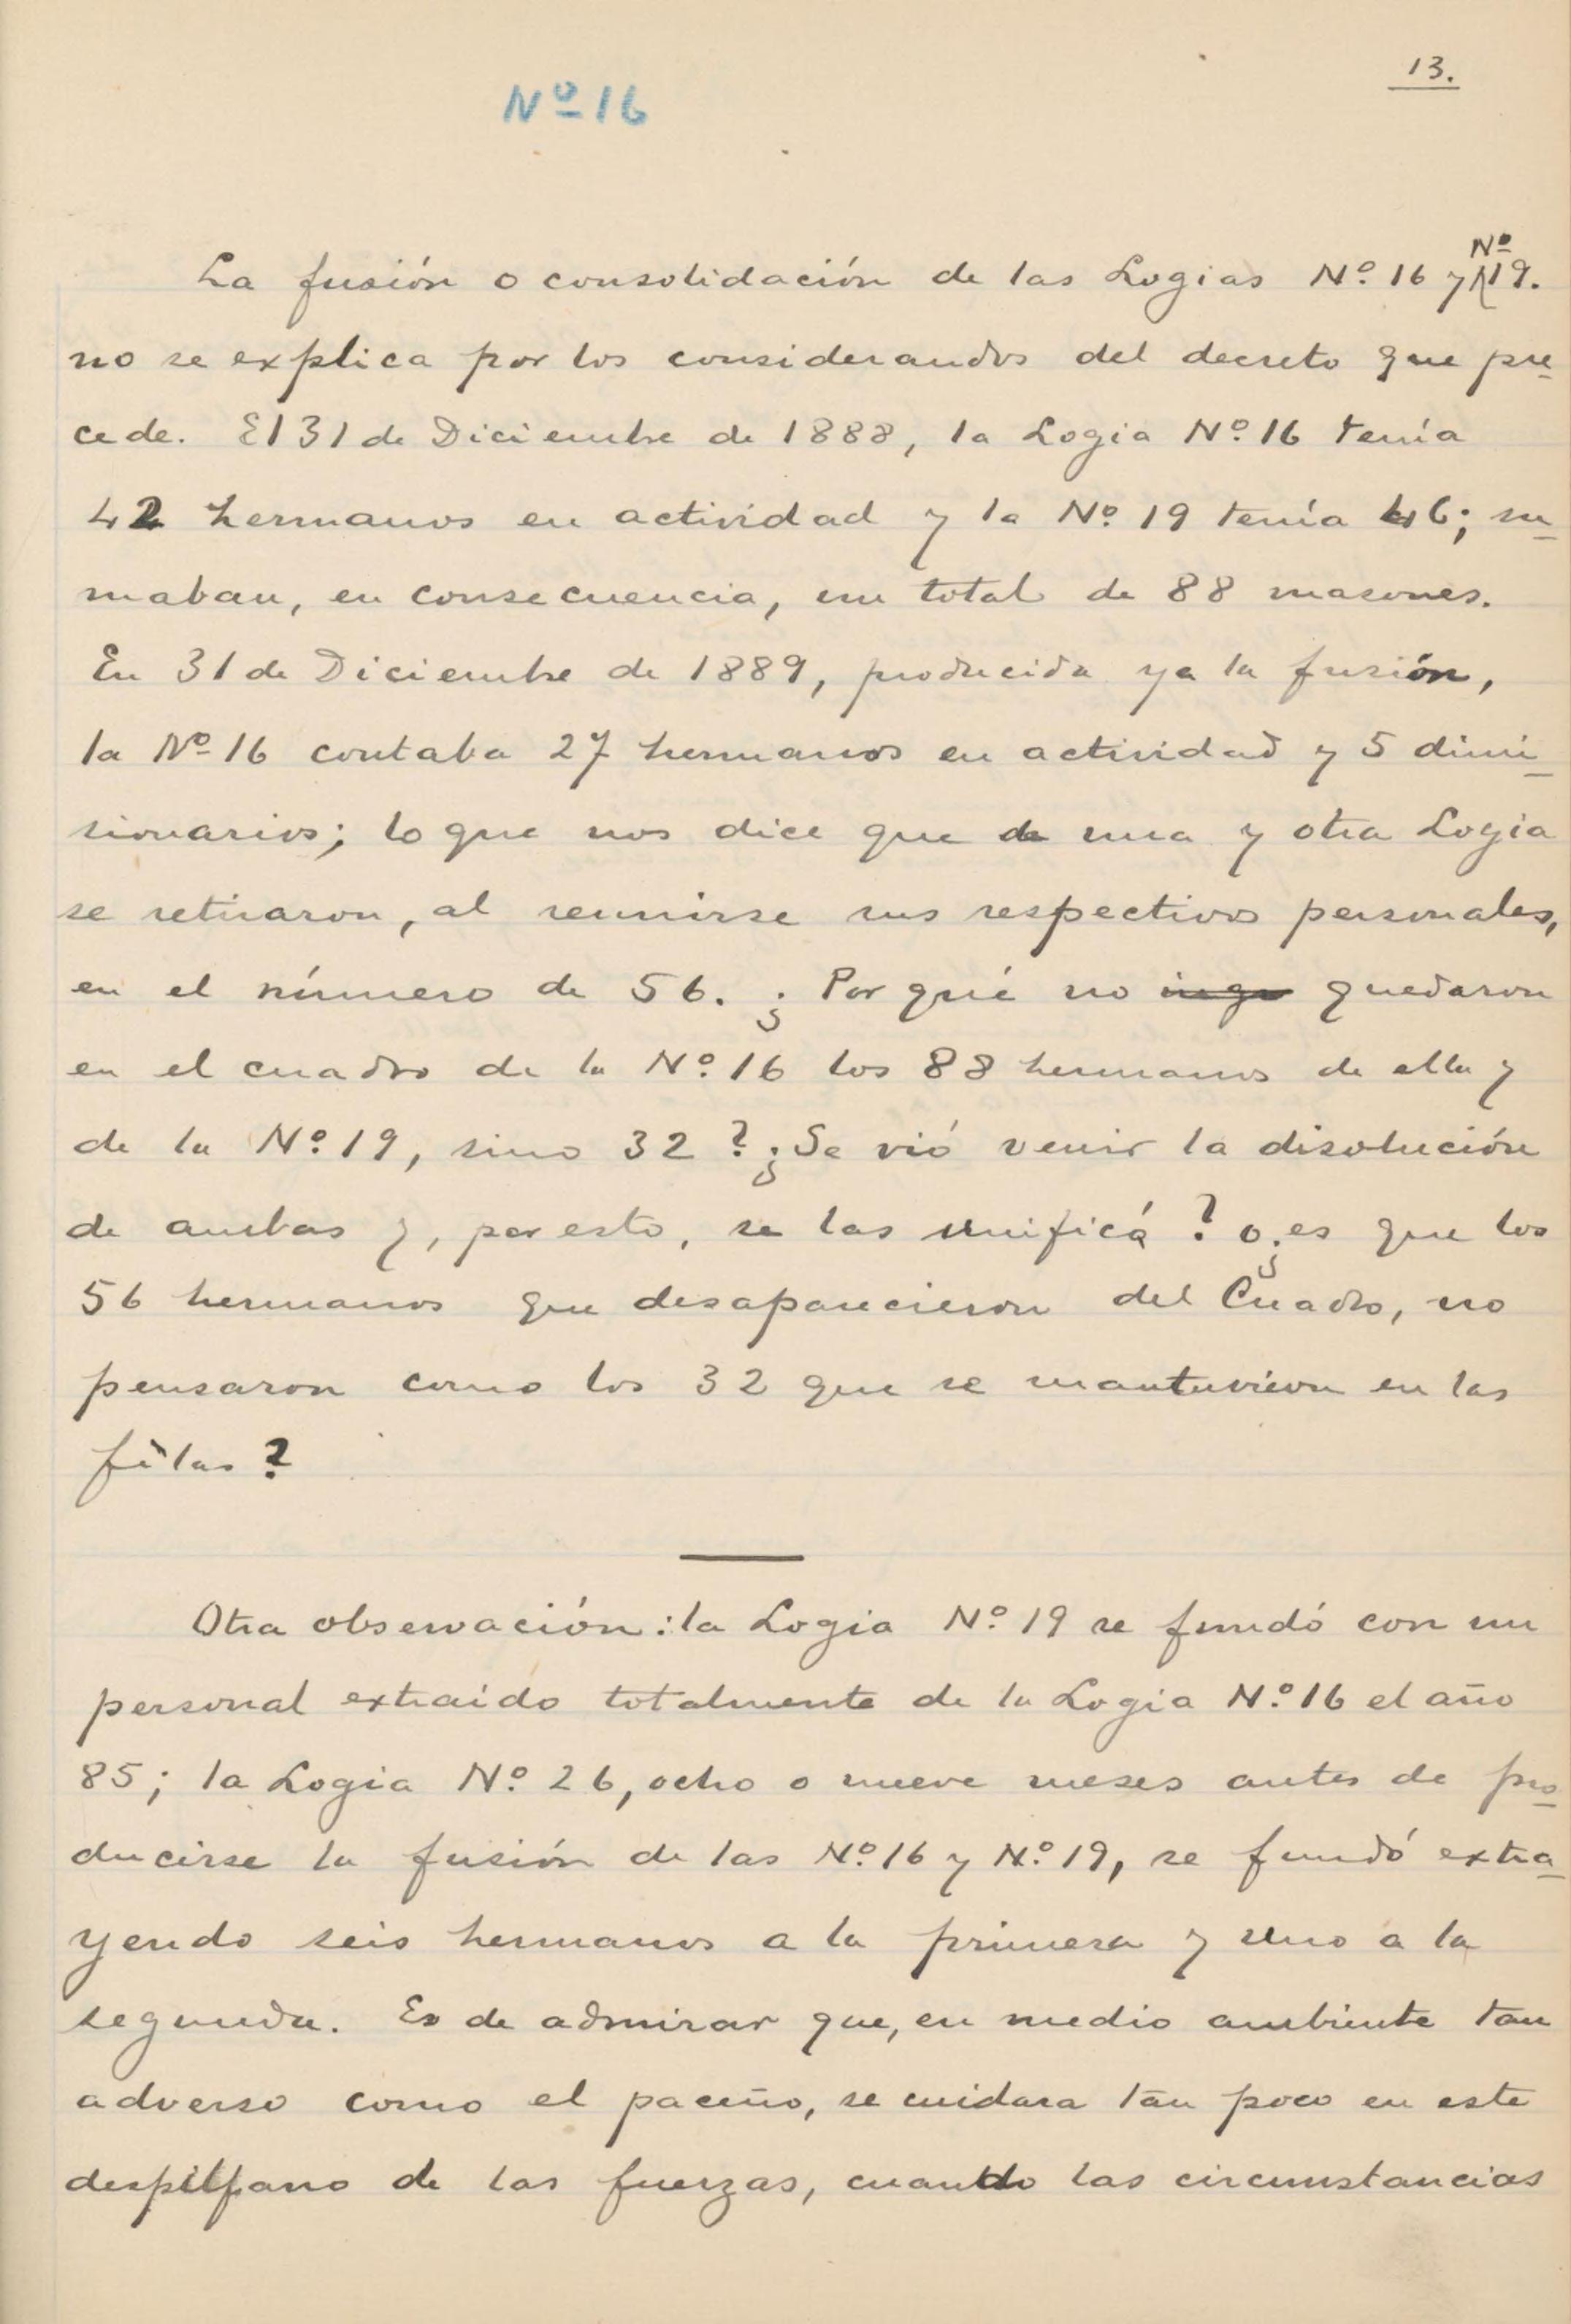 13.
Nº 16
La fusión o consolidación de las Logias Nº 16 y Nº 19.
no se explica por los considerandos del decreto que pre-
cede. El 31 de Diciembre de 1888, la Logia Nº 16 tenía
42 hermanos en actividad y la Nº 19 tenía 46; su-
maban, en consecuencia, un total de 88 masones.
En 31 de Diciembre de 1889, producida ya la fusión,
la Nº 16 contaba 27 hermanos en actividad y 5 dimi-
sionarios; lo que nos dice que de una y otra Logia
se retiraron, al reunirse sus respectivos personales,
en el número de 56. ¿Por qué no quedaron
en el cuadro de la Nº 16 los 88 hermanos de ella y
de la Nº 19, sino 32? ¿Se vió venir la disolución
de ambas y, por esto, se las unificó? o ¿es que los
56 hermanos que desaparecieron del Cuadro, no
pensaron como los 32 que se mantuvieron en las
filas?
Otra observación: la Logia Nº 19 se fundó con un
personal extraido totalmente de la Logia Nº 16 el año
85; la Logia Nº 26, ocho o nueve meses antes de pro-
ducirse la fusión de las Nº 16 y Nº 19, se fundó extra-
yendo seis hermanos a la primera y uno a la
segunda. Es de admirar que, en medio ambiente tan
adverso como el paceño, se cuidara tan poco en este
despilfarro de las fuerzas, cuando las circunstancias